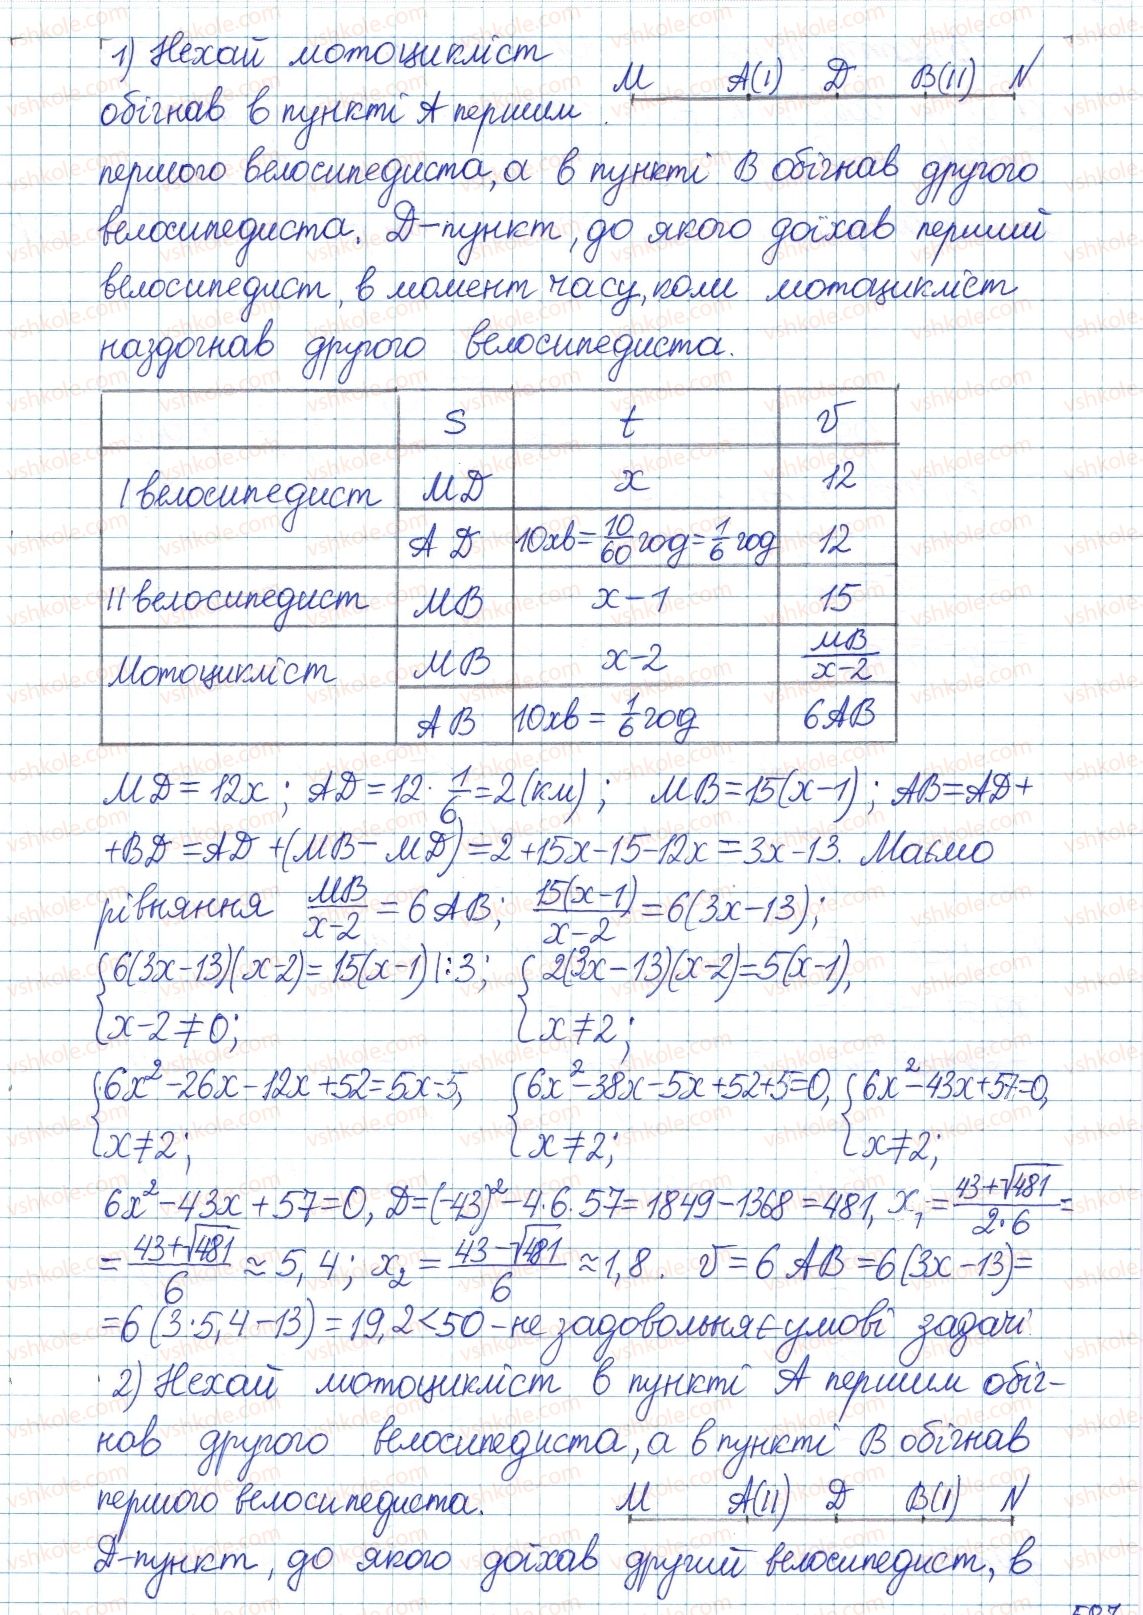 1) Нехай мотоцикліст
M A(I) D B(II) N
обігнав в пункті A першим
першого велосипедиста, а в пункті B обігнав другого
велосипедиста. D-пункт, до якого доїхав перший
велосипедист, в момент часу, коли мотоцикліст
наздогнав другого велосипедиста.
S t v
I велосипедист MD x 12
AD 10хв = 10/60 год = 1/6 год 12
II велосипедист MB x-1 15
Мотоцикліст MB x-2 MB/(x-2)
AB 10хв = 1/6 год 6AB
MD = 12x; AD = 12 · 1/6 = 2 (км); MB = 15(x-1); AB = AD +
+ BD = AD + (MB - MD) = 2 + 15x - 15 - 12x = 3x - 13. Маємо
рівняння MB/(x-2) = 6AB; 15(x-1)/(x-2) = 6(3x-13);
{6(3x-13)(x-2) = 15(x-1) |:3; {2(3x-13)(x-2) = 5(x-1),
x-2≠0; x≠2;
{6x² - 26x - 12x + 52 = 5x - 5, {6x² - 38x - 5x + 52 + 5 = 0, {6x² - 43x + 57 = 0,
x≠2; x≠2; x≠2;
6x² - 43x + 57 = 0, D = (-43)² - 4·6·57 = 1849 - 1368 = 481, x₁ = (43+√481)/(2·6) =
= (43+√481)/6 ≈ 5,4; x₂ = (43-√481)/6 ≈ 1,8. v = 6AB = 6(3x-13) =
= 6(3·5,4-13) = 19,2 < 50 - не задовольняє умові задачі.
2) Нехай мотоцикліст в пункті A першим обіг-
нав другого велосипедиста, а в пункті B обігнав
першого велосипедиста. M A(II) D B(I) N
D-пункт, до якого доїхав другий велосипедист, в